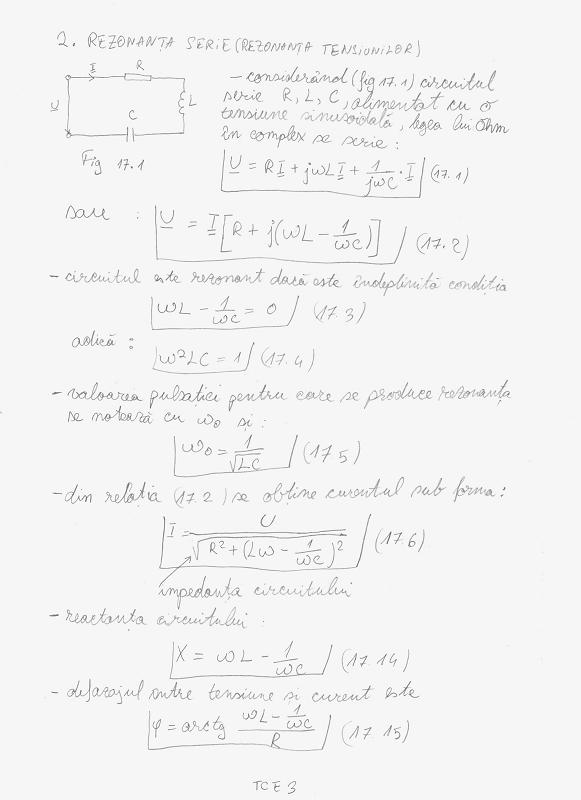 2. REZONANȚA SERIE (REZONANȚA TENSIUNILOR)
I R
U L
C
Fig 17.1
– considerând (fig 17.1) circuitul
serie R, L, C, alimentat cu o
tensiune sinusoidală, legea lui Ohm
în complex se scrie:
U = RI + jωLI + 1/jωC · I (17.1)
sau : U = I[R + j(ωL – 1/ωC)] (17.2)
– circuitul este rezonant dacă este îndeplinită condiția
ωL – 1/ωC = 0 (17.3)
adică:
ω²LC = 1 (17.4)
– valoarea pulsației pentru care se produce rezonanța
se notează cu ω₀ și :
ω₀ = 1/√LC (17.5)
– din relația (17.2) se obține curentul sub forma:
I = U/√R² + (Lω – 1/ωC)² (17.6)
impedanța circuitului
– reactanța circuitului :
X = ωL – 1/ωC (17.14)
– defazajul între tensiune și curent este
φ = arctg ωL – 1/ωC / R (17.15)
TCE 3